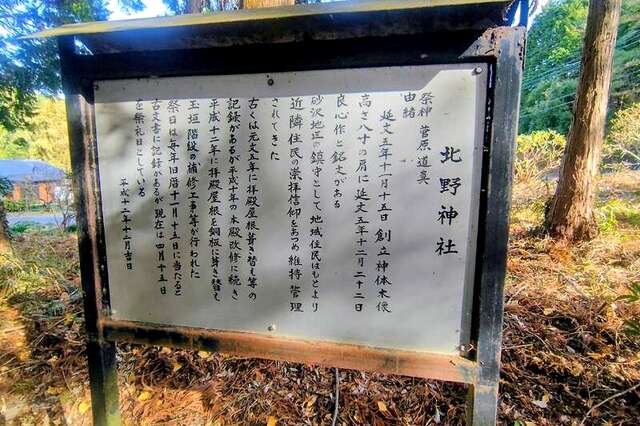 北野神社
祭神 菅原道真
由緒
延文五年十一月十五日創立神体木像
高さ八寸の肩に延文五年十二月二十二日
良心作と銘文がある
砂沢地区の鎮守として地域住民はもとより
近隣住民の崇拝信仰をあつめ維持管理
されてきた
古くは元文五年に拝殿屋根葺き替え等の
記録があるが平成十年の本殿改修に続き
平成十二年に拝殿屋根を銅板に葺き替え
玉垣階段の補修工事が行われた
祭日は毎年旧暦十一月十五日に当たると
古文書に記録があるが現在は四月十五日
を祭礼日にしている
平成十二年十二月吉日